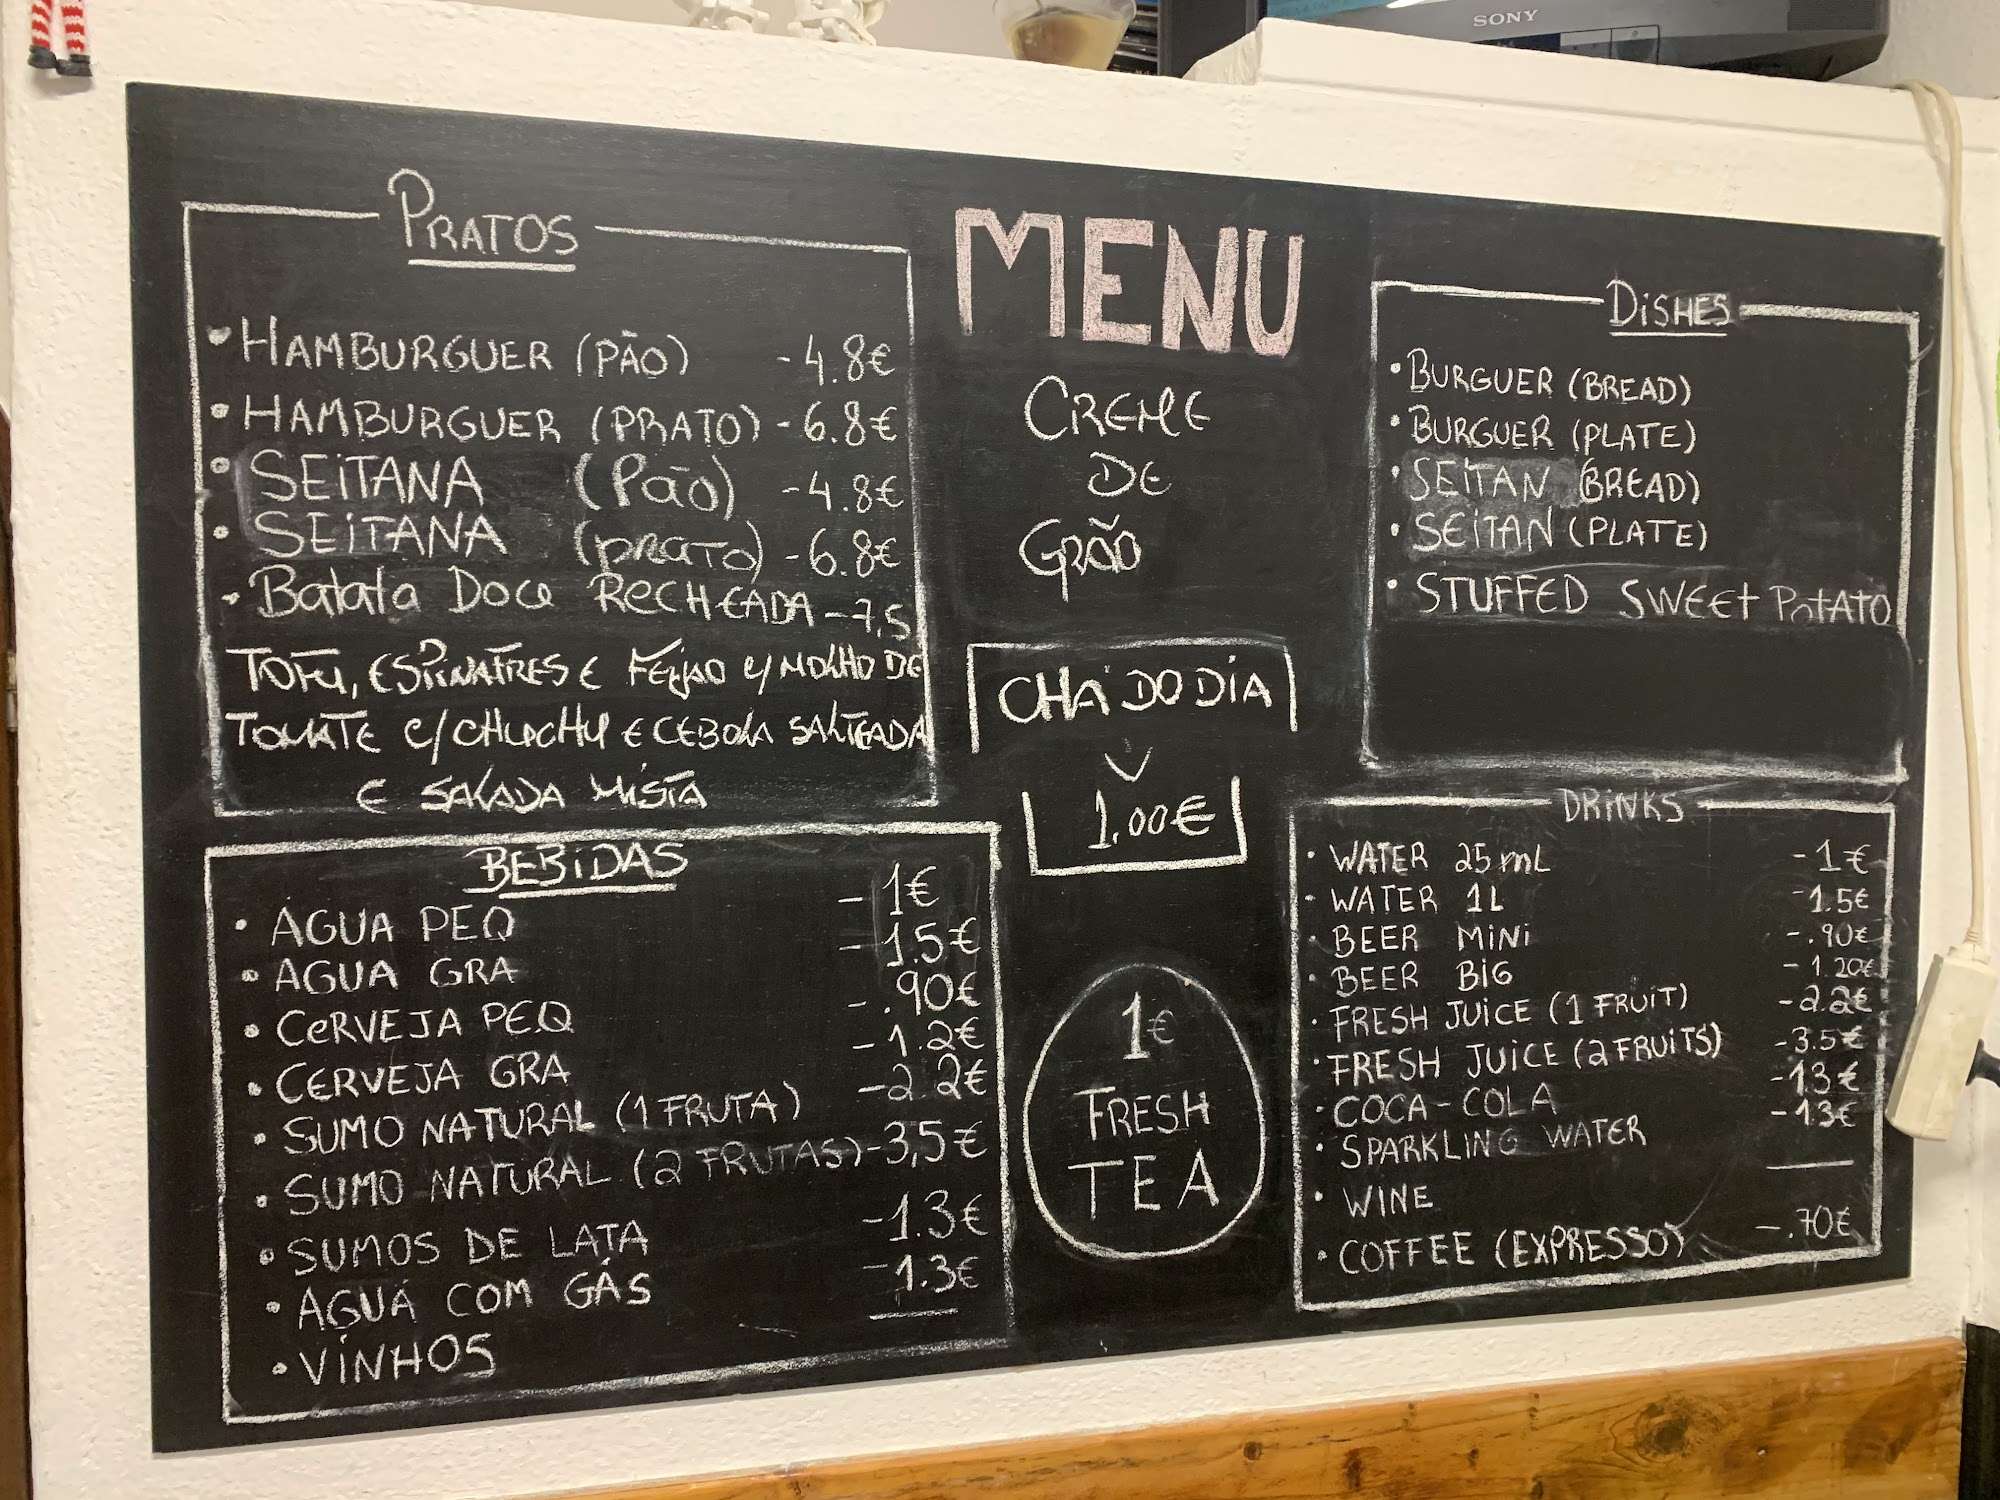 SONY
MENU
PRATOS
• HAMBURGUER (PÃO) - 4.8€
• HAMBURGUER (PRATO) - 6.8€
• SEITANA (PÃO) - 4.8€
• SEITANA (PRATO) - 6.8€
• Batata Doce RECHEADA - 7,5
TOFU, ESPINAFRES E FEIJAO C/ MOLHO DE
TOMATE C/ CHUCHU E CEBOLA SALTEADA
E SALADA MISTA
BEBIDAS
• AGUA PEQ - 1€
• AGUA GRA - 1.5€
• CERVEJA PEQ - .90€
• CERVEJA GRA - 1.2€
• SUMO NATURAL (1 FRUTA) - 2.2€
• SUMO NATURAL (2 FRUTAS) - 3,5€
• SUMOS DE LATA - 1.3€
• AGUA COM GÁS - 1.3€
• VINHOS
CREME
DE
GRÃO
CHÁ DO DIA
1.00€
1€
FRESH
TEA
DISHES
• BURGUER (BREAD)
• BURGUER (PLATE)
• SEITAN (BREAD)
• SEITAN (PLATE)
• STUFFED SWEET POTATO
DRINKS
• WATER 25mL - 1€
• WATER 1L - 1.5€
• BEER MINI - .90€
• BEER BIG - 1.20€
• FRESH JUICE (1 FRUIT) - 2.2€
• FRESH JUICE (2 FRUITS) - 3.5€
• COCA-COLA - 13€
• SPARKLING WATER - 13€
• WINE
• COFFEE (EXPRESSO) - .70€